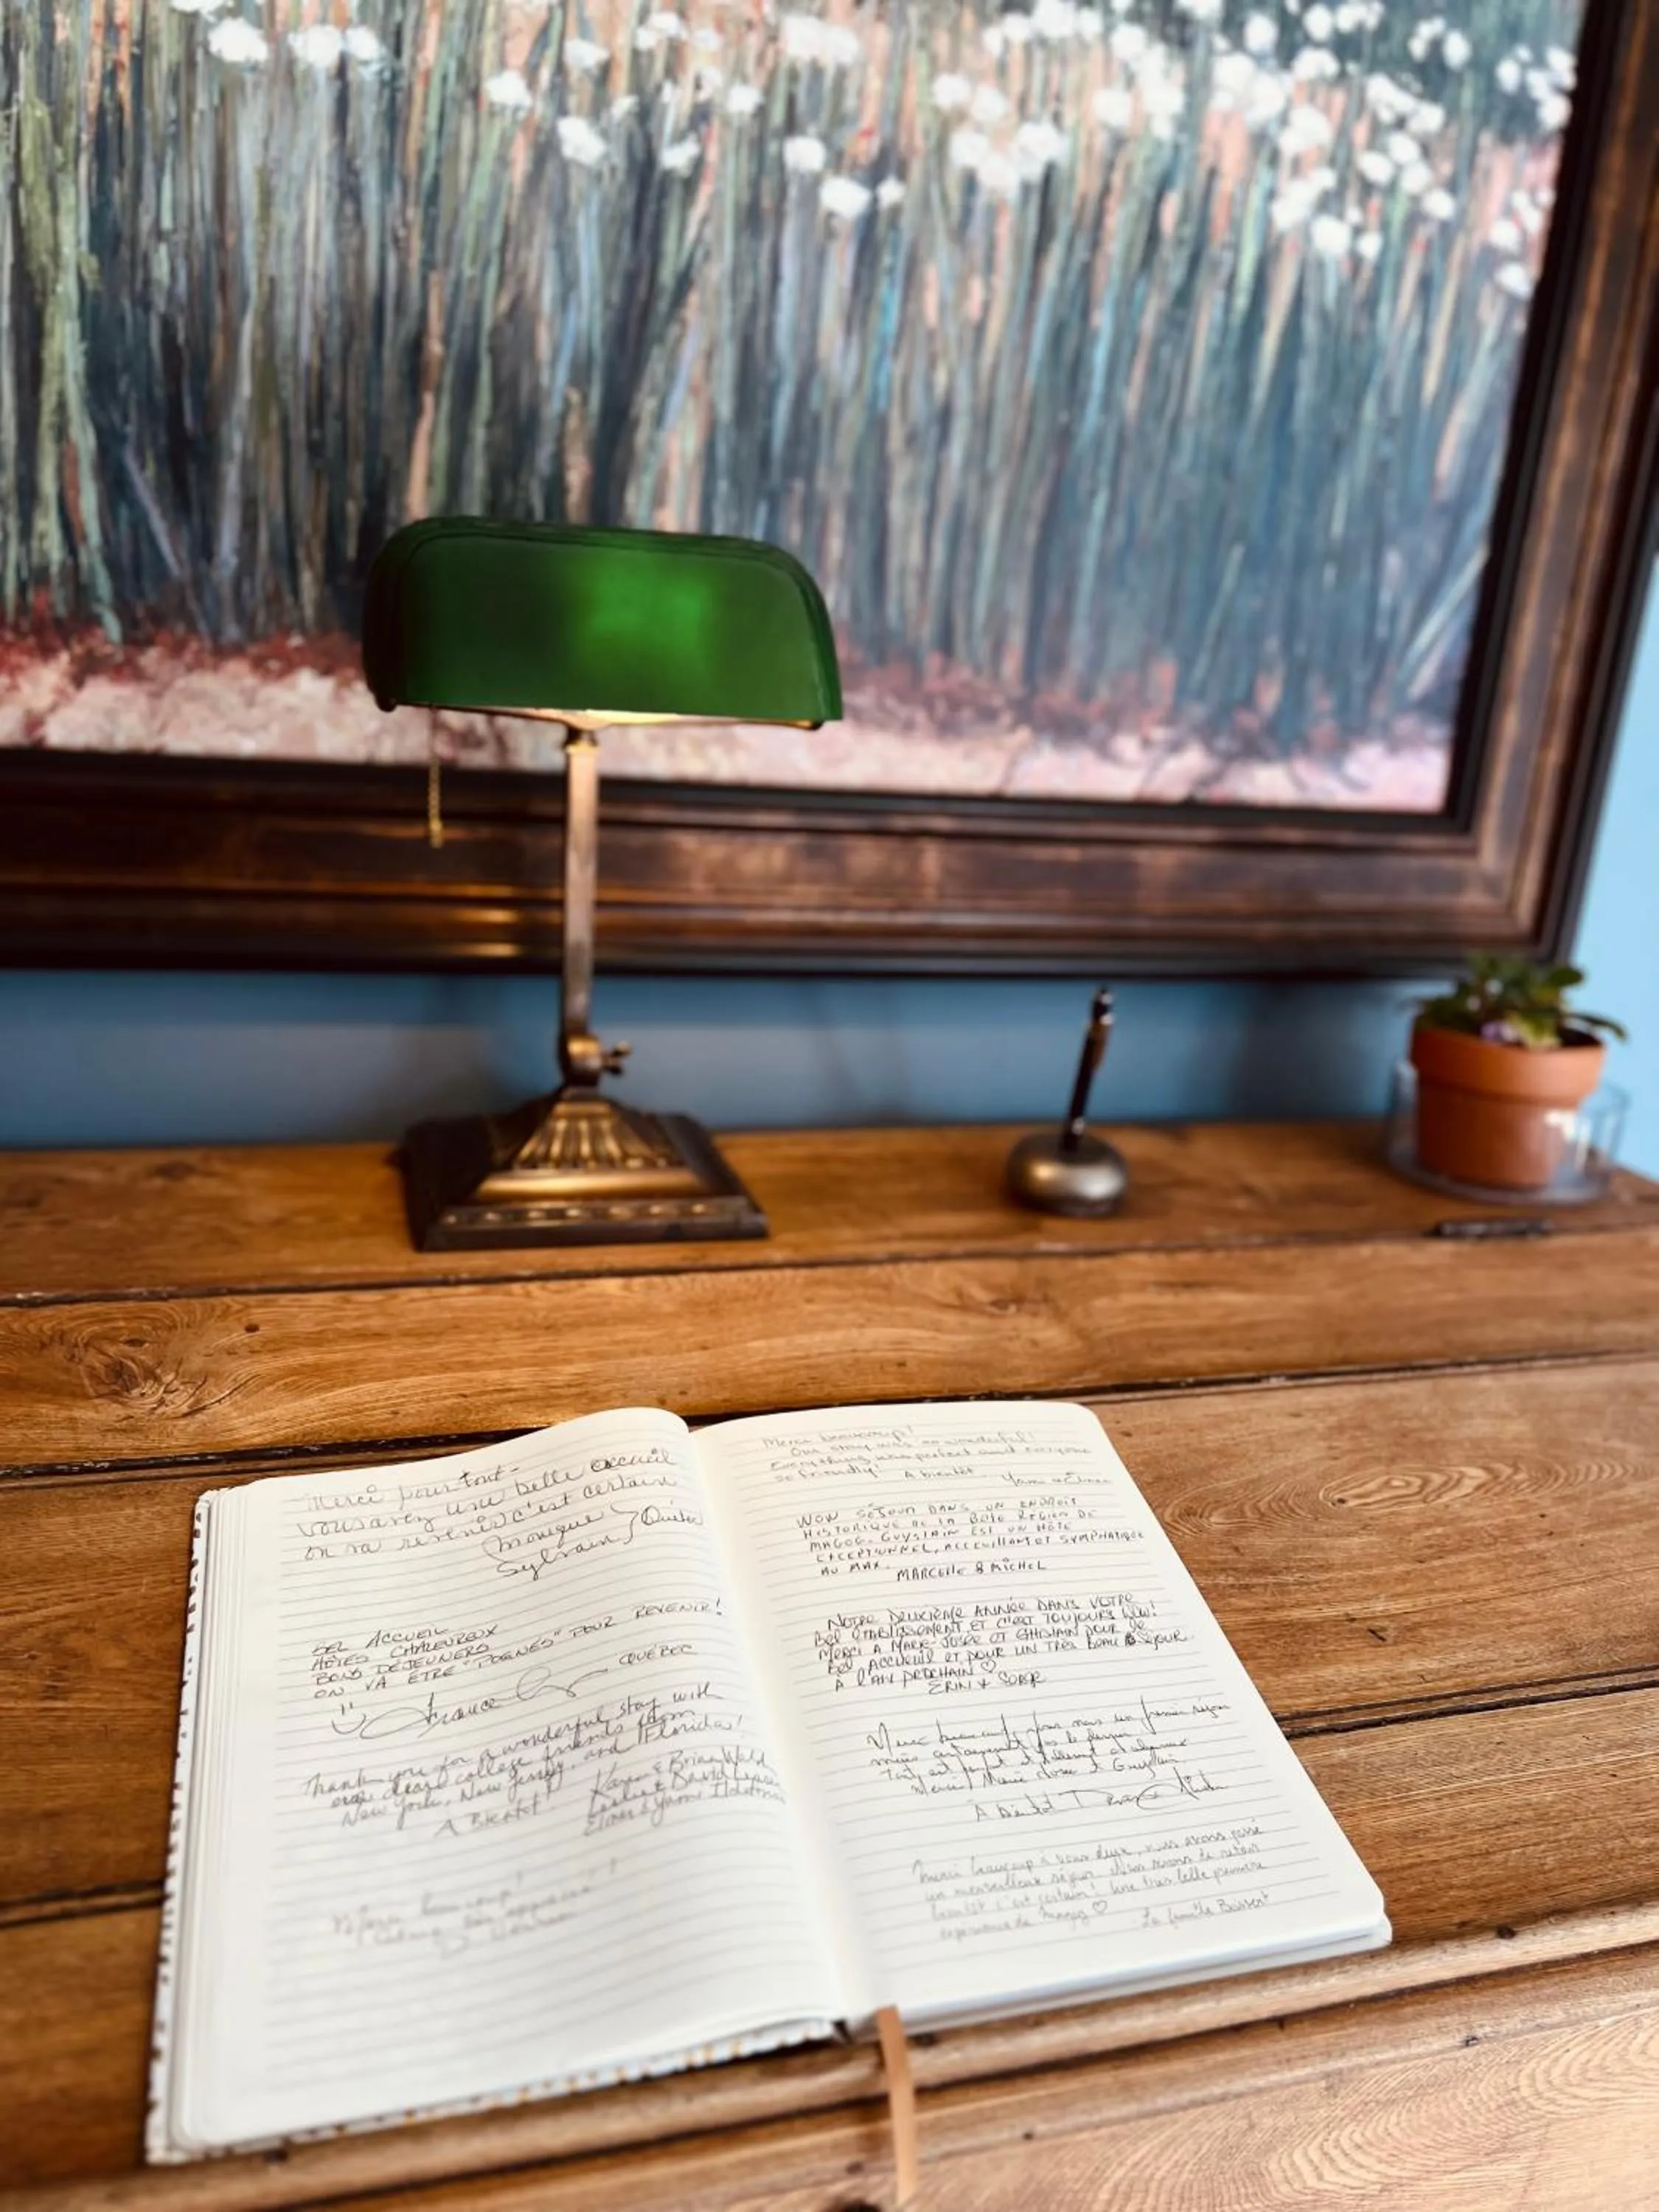 Merci pour tout-
vous avez une belle accueil
on va revenir c'est certain
Monique
Sylvain
Québec
BEL ACCUEIL
HÔTES CHALEUREUX
BONS DÉJEUNERS
ON VA ÊTRE "POGNÉS" POUR REVENIR!
France
QUÉBEC
Thank you for a wonderful stay with
our dear college friends from
New York, New Jersey, and Florida!
A Bientôt!
Karen & Brian Wald
Leslie & David
Elmer & Yasmi
Merci beaucoup!
Merci beaucoup!
Our stay was so wonderful!
Everything was perfect and everyone
so friendly! A bientôt
WOW SÉJOUR DANS UN ENDROIT
HISTORIQUE DE LA BELLE RÉGION DE
MAGOG. GUYSLAIN EST UN HÔTE
EXCEPTIONNEL, ACCEUILLANT ET SYMPHATIQUE
AU MAX.
MARCELLE & MICHEL
NOTRE DEUXIÈME ANNÉE DANS VOTRE
BEL ÉTABLISSEMENT ET C'EST TOUJOURS WOW!
MERCI A MARIE-JOSÉE ET GHISLAIN POUR LE
BEL ACCUEIL ET POUR UN TRÈS BEAU SÉJOUR.
À L'AN PROCHAIN ♡
ERIN & SERGE
Merci beaucoup pour nous un premier séjour
mais certainement pas le dernier
Tout est parfait
Merci Marie Josée et Guyslain
À bientôt
Merci beaucoup à vous deux, nous avons passé
un merveilleux séjour. Nous serons de retour
bientôt c'est certain! Une très belle première
expérience de ♡
La famille Bissent